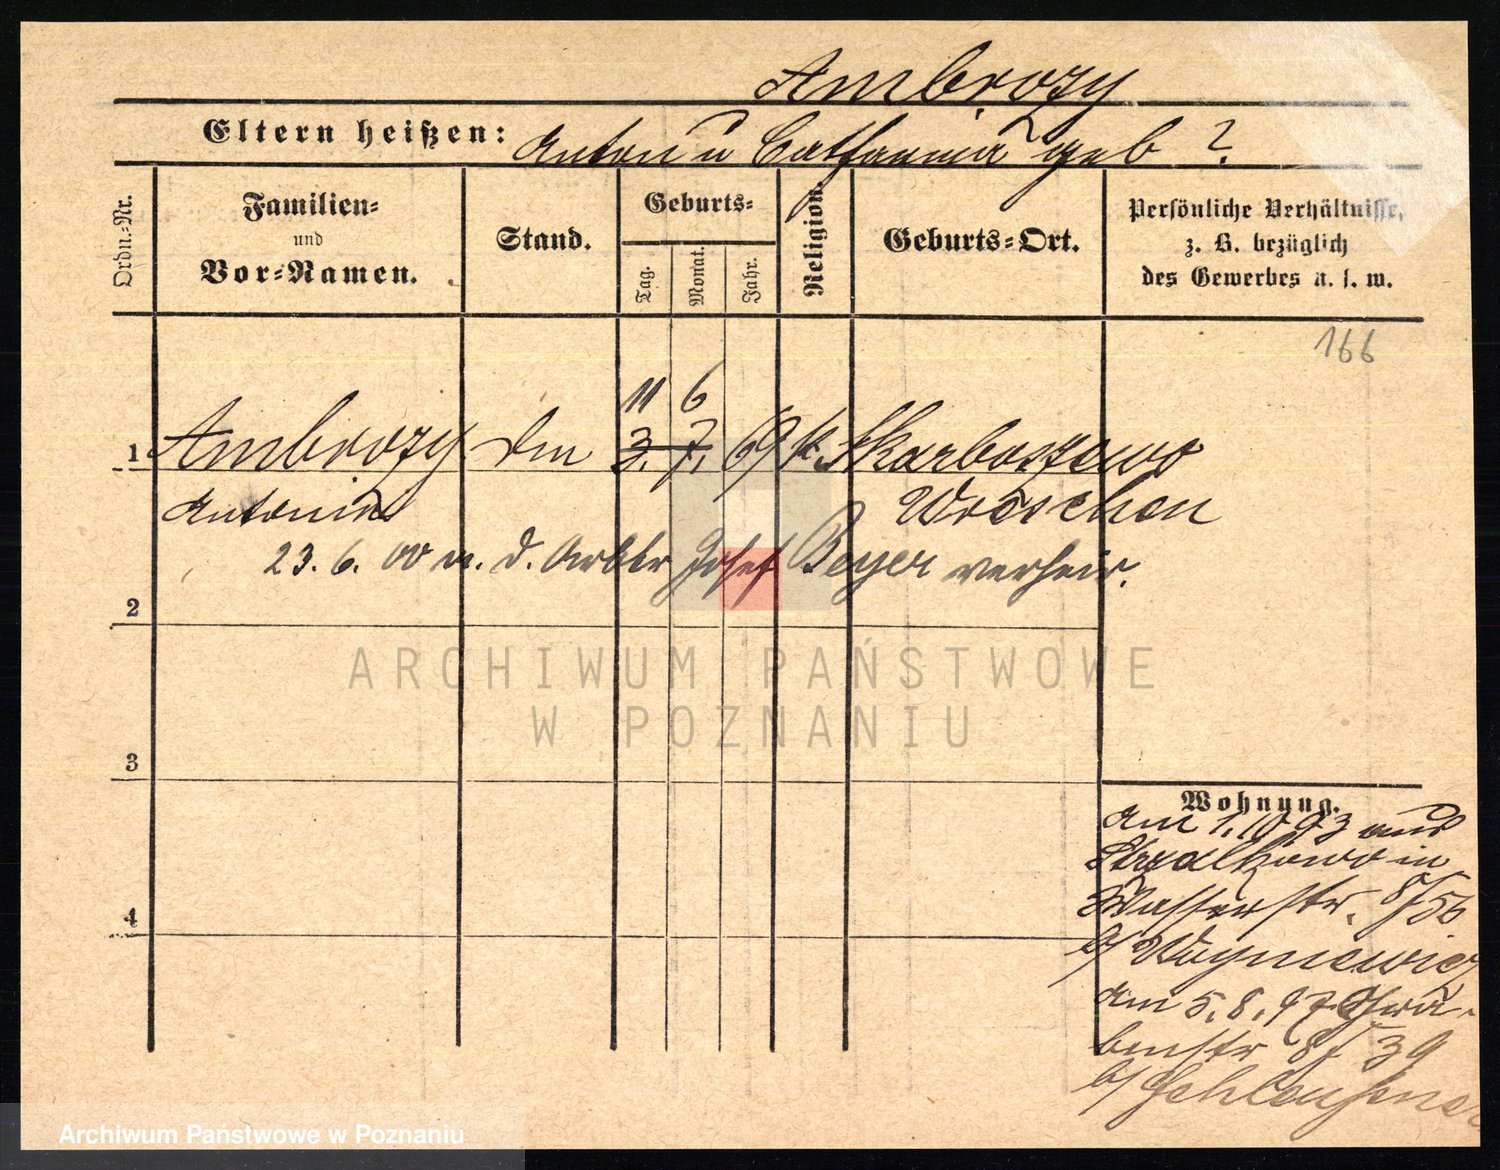 Ambrozy
Eltern heißen: Anton u Catharina geb ?
Ordn.-Nr.
Familien-
und
Vor-Namen.
Stand.
Geburts-
Tag.
Monat.
Jahr.
Religion.
Geburts-Ort.
Persönliche Verhältnisse,
z. B. bezüglich
des Gewerbes u. s. w.
166
11 6
1 Ambrozy 3. 7. 69 k. Skarboszewo
Antonia Wreschen
23. 6. 00 m. d. Arbtr Josef Beyer verheir.
2
3
4
Wohnung.
am 1.10.93 aus
Stralkowo in
Wasserstr. 8/56
b/ Woyniewicz
am 5.8.97
39
b/
ARCHIWUM PAŃSTWOWE
W POZNANIU
Archiwum Państwowe w Poznaniu